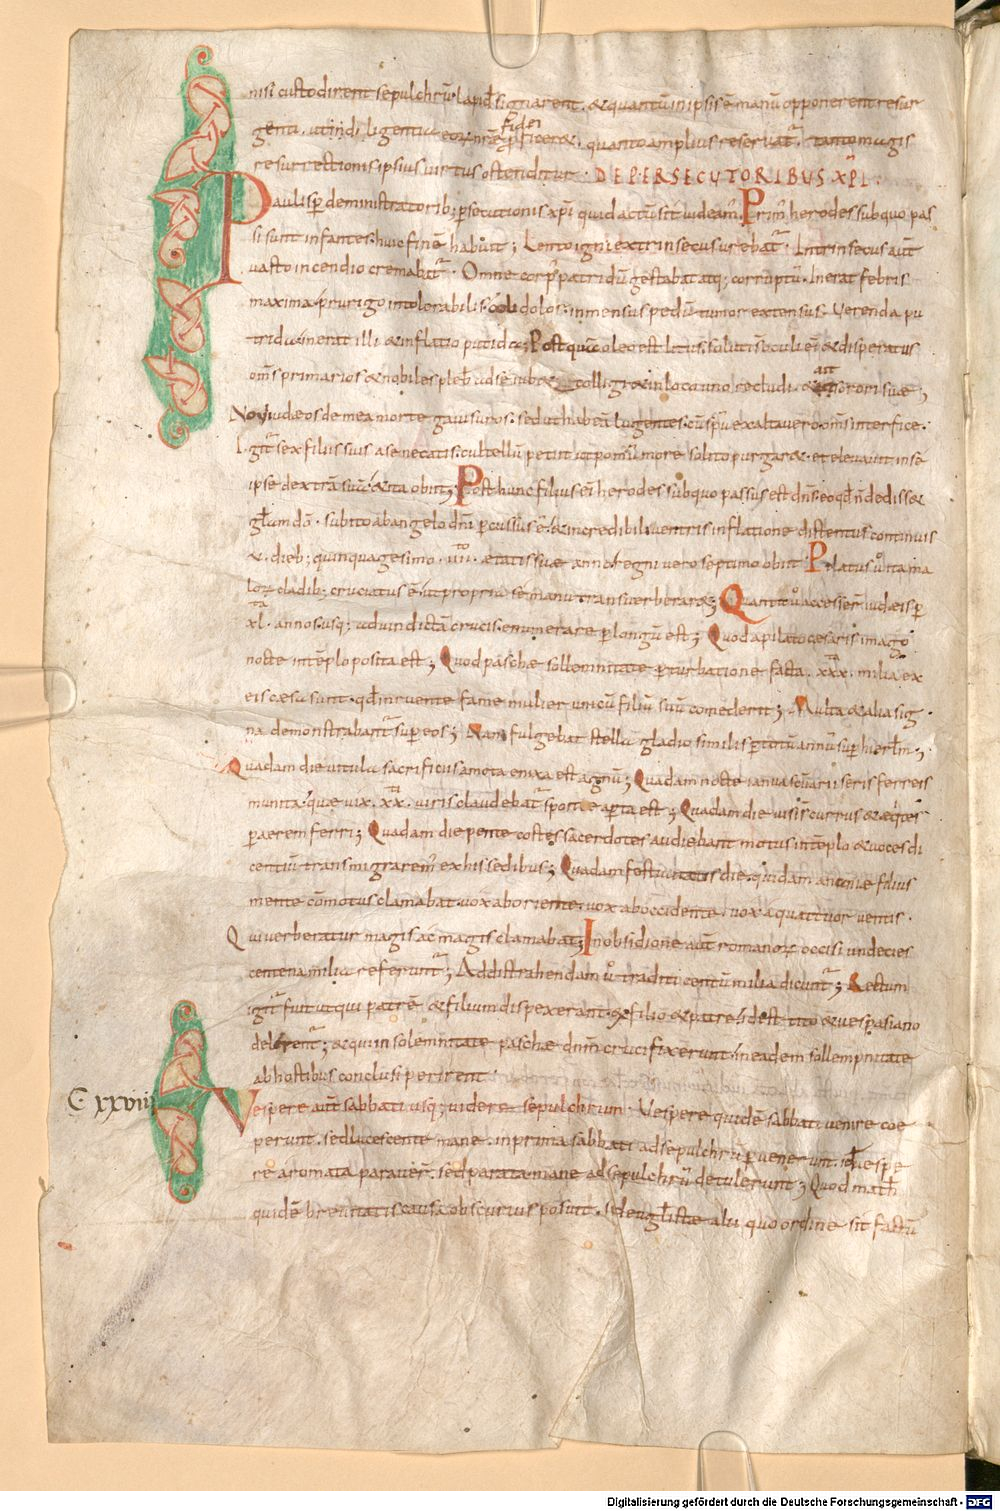 nisi custodirent sepulchrū. lapidē signarent. & quantū in ipsis ē manū opponerent resur
genti. ut inde
fidei
& quanto amplius reservat̄. tanto magis
resurrectionis ipsius virtus ostenditur. DE PERSECUTORIBUS XPI.
Paulisp de ministratorib; psecutionis xpi quid actū sit videam. Prim herodes sub quo pas
si sunt infantes. huic finē habuit; Lento igni extrinsecus urebat̄. Intrinsecus aūt
vasto incendio cremabat̄. Omne corp patridū gestabat atq; corruptū. Inerat febris
maxima. prurigo intolerabilis. coli dolos. inmensus pedū tumor extensus. Verenda pu
trida inerat illi & inflatio putida; Postquā oleo est litus. soluti s oculi ei & disperatus
om̄s primarios & nobiles pleb iudæ iub& colligi & in loca uno recludi. &
ait
sorori suæ;
Novi iudæos de mea morte gavisuros. sed ut habeā lugentes. cū spū exaltavero om̄s interfice.
Igit̄ sex filiis suis a se necatis. cultellū petiit ut pomū more solito purgar&. et elevavit in sē
ipse dextrā suā. & ita obiit; Post hunc filius ei herodes sub quo passus est dn̄s. eo qđ n̄ dediss&
glam dō. subito ab angelo dn̄i percussus ē. & incredibili ventris inflatione distentus continuis
dieb; quinquagesimo. IIII.
to
ætatis suæ anno. regni vero septimo obiit. Pilatus ū ita ma
lorū cladib; cruciatus ē. ut propria se manu transverberar&; Quanti ū accesser iudæis p
xl.
ta
annos usq; ad vindictā crucis. enumerare p longū est; Quod a pilato cesaris imago
nocte in tēplo posita est; Quod paschæ sollemnitate pturbatione facta. xxx.
ta
milia ex
eis cæsa sunt. qđ inruente fame mulier unicū filiū suū comederit; Multa & alia sig
na demonstrabant̄ super eos; Nam fulgebat stella gladio similis p totū annū sup hierlm;
Quadam die vitula sacrificiis amota enixa est agnū; Quadam nocte ianua sevarii seris ferreis
munita. quæ vix. xx.
ti
viris claudebat̄ sponte apta est; Quadam die visi s̄ currus & æqtes
p aerem ferri; Quadam die pentecostes sacerdotes audiebant motus in tēplo & voces di
centiū transmigrarem ex his sedibus; Quadam festivitatis die. quidam ananiæ filius
mente cōmotus clamabat. vox ab oriente. vox ab occidente. vox a quattuor ventis.
Qui verberatur magis ac magis clamabat; In obsidione aūt romanorū occisi undecies
centena milia referunt̄; Ad distrahendam ū traditi centū milia dicunt̄; Rectum
igit̄ fuit ut qui patrē & filium dispexerant. ex filio & patre id est tito & vespasiano
delerent̄; & qui in solemnitate paschæ dnm crucifixerunt. in eadem sollempnitate
ab hostibus conclusi perirent.
C xxviiii
Vespere aūt sabbati usq; videre sepulchrum. Vespere quidē sabbati venire coe
perunt. sed lucescente mane. in prima sabbati ad sepulchrū pervenerunt. id ē vespe
re aromata paraver̄. sed parata mane ad sepulchrū detulerunt; Quod math
quidē brevitatis causa obscurius posuit. sed evglistæ alii quo ordine sit factū